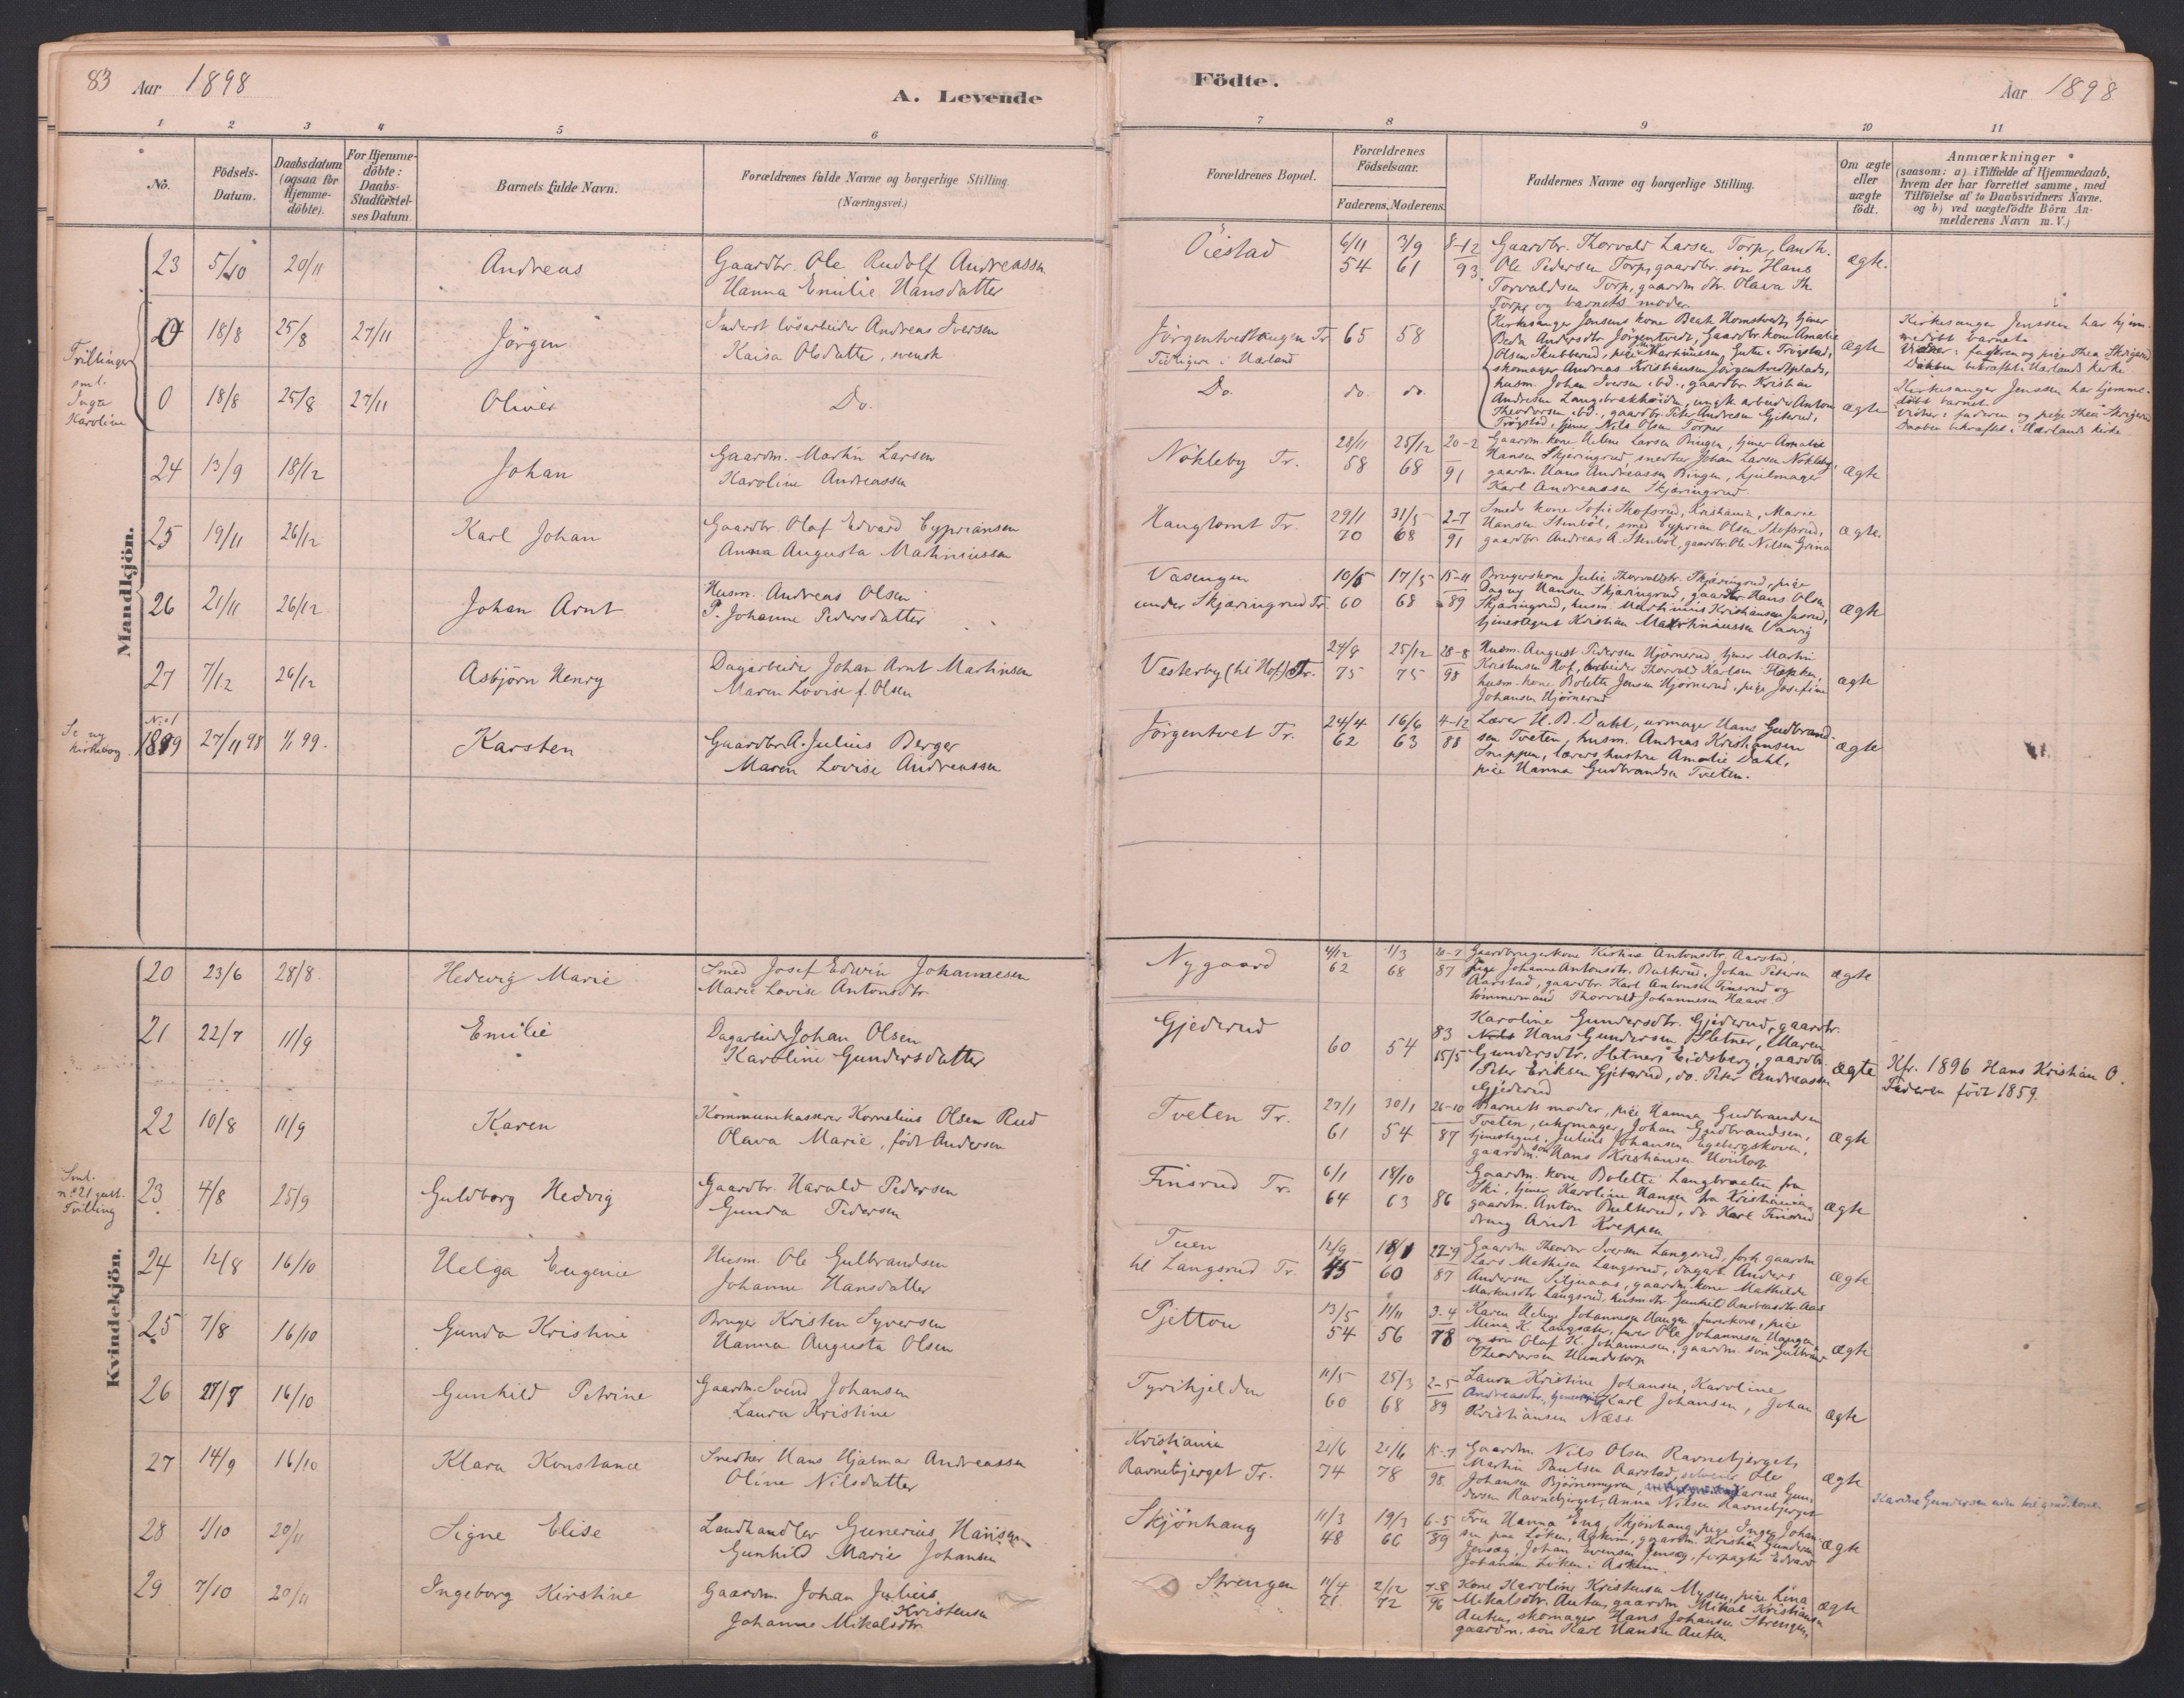 83 Aar 1898
A. Levende
1 2 3 4 5 6
No.
Födsels-
Datum.
Daabsdatum
(ogsaa for
Hjemme-
döbte).
For Hjemme-
döbte:
Daabs-
Stadfæstel-
ses Datum.
Barnets fulde Navn.
Forældrenes fulde Navne og borgerlige Stilling.
(Næringsvei.)
Mandkjön.
23 5/10 20/11 Andreas Gaardbr. Ole Rudolf Andreassen
Hanna Emilie Hansdatter
Trillinger
sml.
Inga
Karoline
0 18/8 25/8 27/11 Jörgen Inderst lösarbeider Andreas Iversen
Kaisa Olsdatter, svensk
0 18/8 25/8 27/11 Oliver Do.
24 13/9 18/12 Johan Gaardm. Martin Larsen
Karoline Andreassen
25 19/11 26/12 Karl Johan Gaardbr. Olaf Edvard Cypriansen
Anna Augusta Mathiniussen
26 21/11 26/12 Johan Arnt Husm. Andreas Olsen
P. Johanne Pedersdatter
27 7/12 26/12 Asbjörn Henry Dagarbeider Johan Arnt Martinsen
Maren Lovise f. Olsen
Se ny
kirkebog
No 1
1899 27/11 98 1/1 99. Karsten Gaardbr. A. Julius Berger
Maren Lovise Andreassen
Kvindekjön.
20 23/6 28/8 Hedevig Marie Smed Josef Edwin Johannesen
Marie Lovise Antonsdtr.
21 22/7 11/9 Emilie Dagarbeider Johan Olsen
Karoline Gundersdatter
22 10/8 11/9 Karen Kommunekasserer Kornelius Olsen Rud
Olava Marie, födt Andersen
Sml.
no 21 gutt.
Tvilling
23 4/8 25/9 Guldborg Hedvig Gaardbr. Harald Pedersen
Gunda Pedersen
24 12/8 16/10 Helga Eugenie Husm. Ole Gulbrandsen
Johanne Hansdatter
25 7/8 16/10 Gunda Kristine Bruger Kristen Syversen
Hanna Augusta Olsen
26 27/7 16/10 Gunhild Petrine Gaardm. Svend Johansen
Laura Kristine
27 14/9 16/10 Klara Konstance Snedker Hans Hjalmar Andreassen
Oline Nilsdatter
28 1/10 20/11 Signe Elise Landhandler Gunerius Hansen
Gunhild Marie Johansen
29 7/10 20/11 Ingeborg Kirstine Gaardm. Johan Julius
Kristensen
Johanne Mikalsdtr.
Födte.
Aar 1898
7 8 9 10 11
Forældrenes Bopæl.
Forældrenes
Födselsaar.
Faderens. Moderens.
Faddernes Navne og borgerlige Stilling.
Om ægte
eller
uægte
födt.
Anmærkninger
(saasom: a) i Tilfælde af Hjemmedaab,
hvem der har forrettet samme, med
Tilföielse af to Daabsvidners Navne.
og b) ved uægtefödte Börn An-
melderens Navn m. V.)
Öiestad 6/11 54 3/9 61 8-12 93 Gaardbr. Thorvald Larsen Torp, landh.
Ole Pedersen Torp, gaardbr. sön Hans
Torvaldsen Torp, gaardm. dtr. Olava Th.
Torp, og barnets moder.
ægte.
Jörgentvedthaugen Tr. 65 58
Tidligere i Hærland
Kirkesanger Jensens kone Beate Homstvedt, tjener
Beda Andersdtr. Jörgentvedt, Gaardbr. kone Amalie
Olsen Skubberud, pige Martinusen, Gutu i Trögstad,
skomager Andreas Kristiansen Jörgentvedtplads,
husm. Johan Iversen ibd., gaardbr. Kristian
Andresen Langebrækkeiden, ungk. arbeider Anton
Theodorsen ibd., gaardbr. Peter Andresen Gjiterud,
Trögstad, tjener Nils Olsen Torper
ægte
Kirkesanger Jenssen har hjem-
medöbt barnet.
Vidner: faderen og pige Thea Skrigerud
Daaben bekræftet i Hærlands kirke
Do. do. do. ægte
Kirkesanger Jenssen har hjemme-
döbt barnet
Vidner: faderen og pige Thea Skrigerud
Daaben bekræftet i Hærlands kirke
Nökleby Tr. 22/11 58 25/12 68 20-2 91 Gaardm. kone Helene Larsen Bingen, tjener Amalie
Hansen Skjæringrud, snedker Johan Larsen Nökleby,
gaardm. Hans Andreassen Bingen, hjulmager
Karl Andreassen Skjæringrud
ægte
Haugtomt Tr. 29/1 70 31/5 68 2-7 91 Smeds kone Sofie Skofsrud, Kristiania, Marie
Hansen Stenböl, smed Cyprian Olsen Skofsrud,
gaardbr. Andreas A. Stenböl, gaardbr. Ole Nilsen Grina
ægte.
Vasengen
under Skjæringrud Tr. 10/5 60 17/5 68 15-11 89 Brugerskone Julie Thorvaldstr. Skjæringrud, pige
Dagny Hansen Skjæringrud, gaardbr. Hans Olsen
Skjæringrud, husm. Martinius Kristiansen Jusrud,
tjenestegut Kristian Martiniussen Vasvig
ægte
Vesterby (hi Hof) Tr. 24/8 75 25/12 75 28-8 98 Husm. August Pedersen Hjörnerud, tjener Martin
Kristensen Hof, arbeider Thorvald Karlsen Flopken,
husm. kone Bolette Jensen Hjörnerud, pige Josefine
Johansen Hjörnerud
ægte
Jörgentvet Tr. 24/4 62 16/6 63 4-12 88 Lærer H. B. Dahl, urmager Hans Gudbrand-
sen Tveten, husm. Andreas Kristiansen
Snippen, lærers hustru Amalie Dahl,
pige Hanna Gudbrandsen Tveten.
ægte
Nygaard 4/12 62 1/3 68 26-7 87 Gaardbrugerkone Kirstine Antonsdtr. Aarstad,
pige Johanne Antonsdtr. Bulterud, Johan Petersen
Aarstad, gaardbr. Karl Antonsen Finsrud og
tömmermand Thorvald Johannesen Haave
ægte
Gjederud 60 54 83 15/5 Karoline Gundersdtr. Gjederud, gaardbr.
Nils Hans Gundersen Sletner, Maren
Gundersdtr. Sletner i Eidsberg, gaardbr.
Peter Eriksen Gjiterud, do. Peter Andreassen
Gjederud
ægte Kfr. 1896 Hans Kristian O.
Faderen födt 1859.
Tveten Tr. 27/1 61 30/1 54 26-10 87 Barnets moder, pige Hanna Gudbrandsen
Tveten, uhrmager Johan Gudbrandsen,
tjenestegut Julius Johansen Egebergskoven,
gaardm. sön Hans Kristiansen Höntorp
ægte
Finsrud Tr. 6/1 64 18/10 63 86 Gaardm. kone Bolette Langbraaten fra
Ski, tjener Karoline Hansen fra Kristiania
gaardm. Anton Bulterud, do. Karl Finsrud
dreng Arnt Kreppen
ægte
Tuen
til Langsrud Tr. 12/9 45 18/1 60 27-9 87 Gaardm. Theodor Iversen Langsrud, forh. gaardm.
Lars Mathisen Langsrud, dagarb. Anders
Andersen Sitjuaas, gaardm. kone Mathilde
Markusdtr. Langsrud, husm. dtr. Gunhild Andreasdtr. Aas
ægte
Pjetton 13/5 54 11/11 56 3-4 78 Karen Helene Johannesen Haugen, furerkone, pige
Mina K. Langsæter, furer Ole Johannesen Haugen
og sön Olaf K. Johannesen, gaardm. sön Gulbrand
Theodorsen Hundstorp
ægte
Tyrihjelden 11/5 60 25/3 68 2-5 89 Laura Kristine Johansen, Karoline
Andreasdtr., Karl Johansen, Johan
Kristiansen Næss
ægte
Kristiania
Ravnebjerget Tr. 21/6 74 21/6 78 15-7 98 Gaardm. Nils Olsen Ravnebjerget,
Martin Paulsen Aarstad, selveier Ole
Johansen Björnemyren, Karine Gun-
dersen Ravnebjerget, Anna Nilsen Ravnebjerget
ægte
Skjönhaug 11/3 48 19/3 66 6-5 89 Fru Hanna Eng, Skjönhaug, pige Inga Johan-
sen paa Löken, Askim, gaardm. Kristian Gundersen
Jensæg, Johan Evensen Jensæg, forpagter Edvard
Johansen Löken i Askim.
ægte
Strengen 11/4 71 2/12 72 7-8 96 Kone Karoline Kristensen Mysen, pige Lina
Mikalsdtr. Auten, gaardm. Mikal Kristiansen
Auten, skomager Hans Johansen Strengen,
gaardm. sön Karl Hansen Auten
ægte